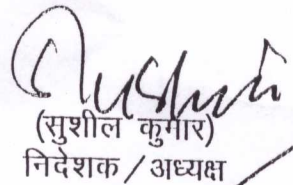 (सुशील कुमार)
निदेशक / अध्यक्ष